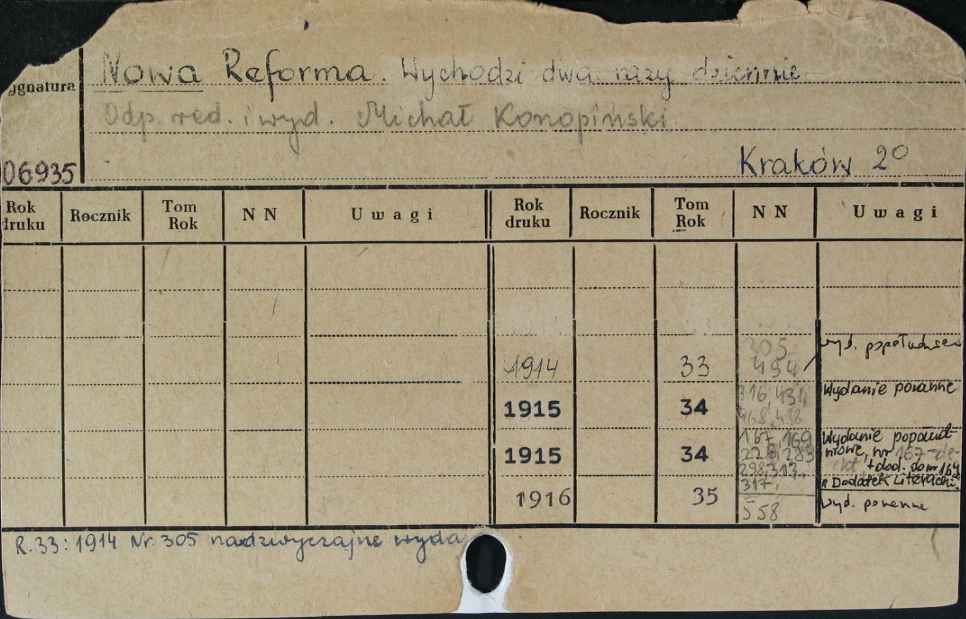 Nowa Reforma. Wychodzi dwa razy dziennie
ygnatura
Odp. red. i wyd. Michał Konopiński
06935
Kraków 2°
Rok druku Rocznik Tom Rok N N Uwagi Rok druku Rocznik Tom Rok N N Uwagi
1914 33 305, 494 wyd. popołudniow
1915 34 316, 434 Wydanie poranne
1915 34 167, 169 Wydanie popołud-
niowe, nr 167
298, 313, + dod. do nr 164
317, Dodatek Literacki
1916 35 558 wyd. poranne
R. 33: 1914 Nr. 305 nadzwyczajne wyda